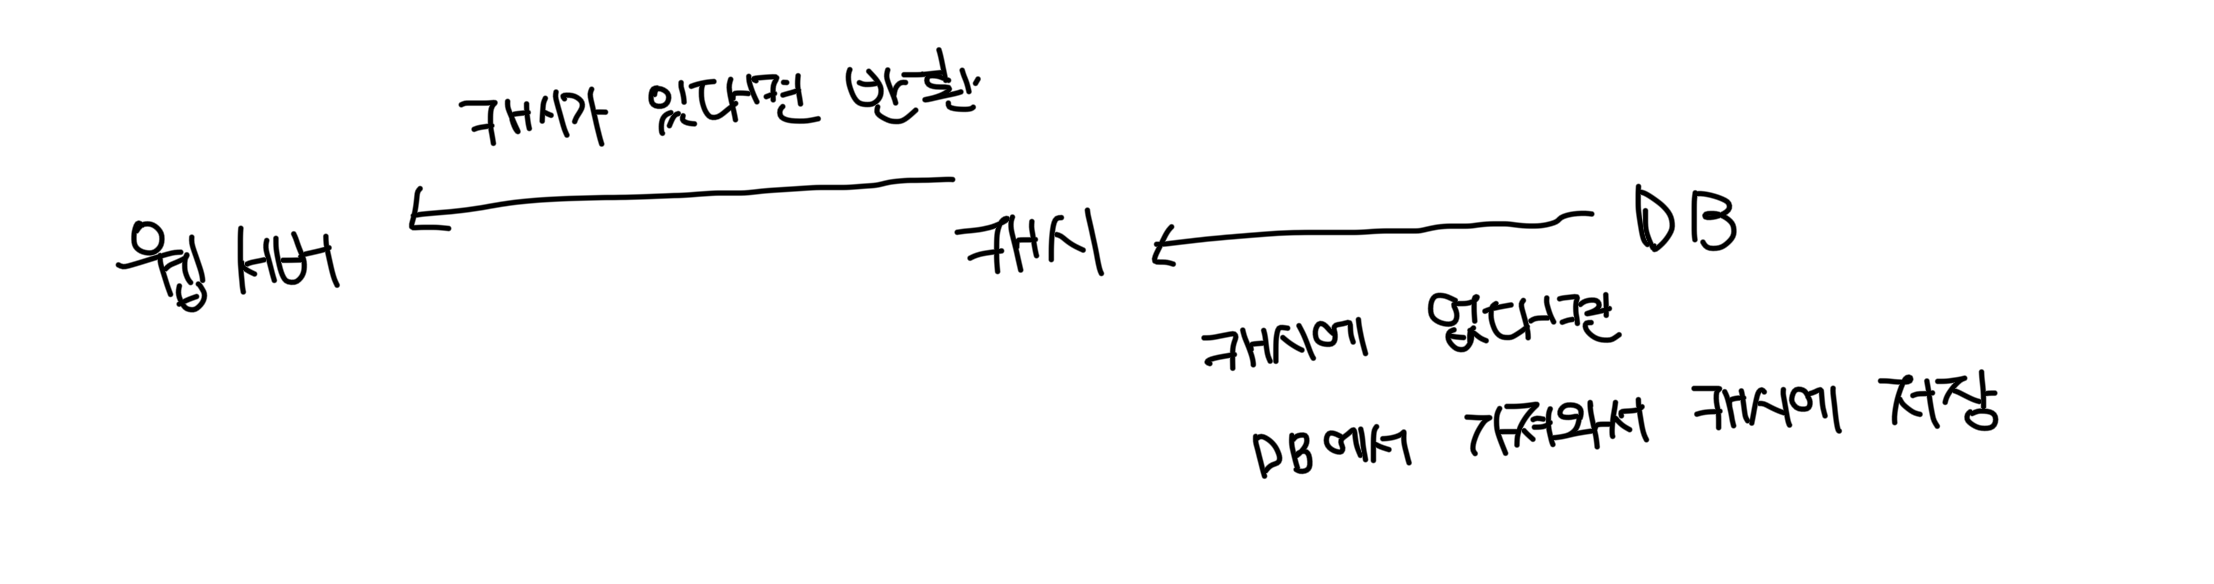 캐시가 있다면 반환
웹 서버
캐시
DB
캐시에 없다면
DB에서 가져와서 캐시에 저장